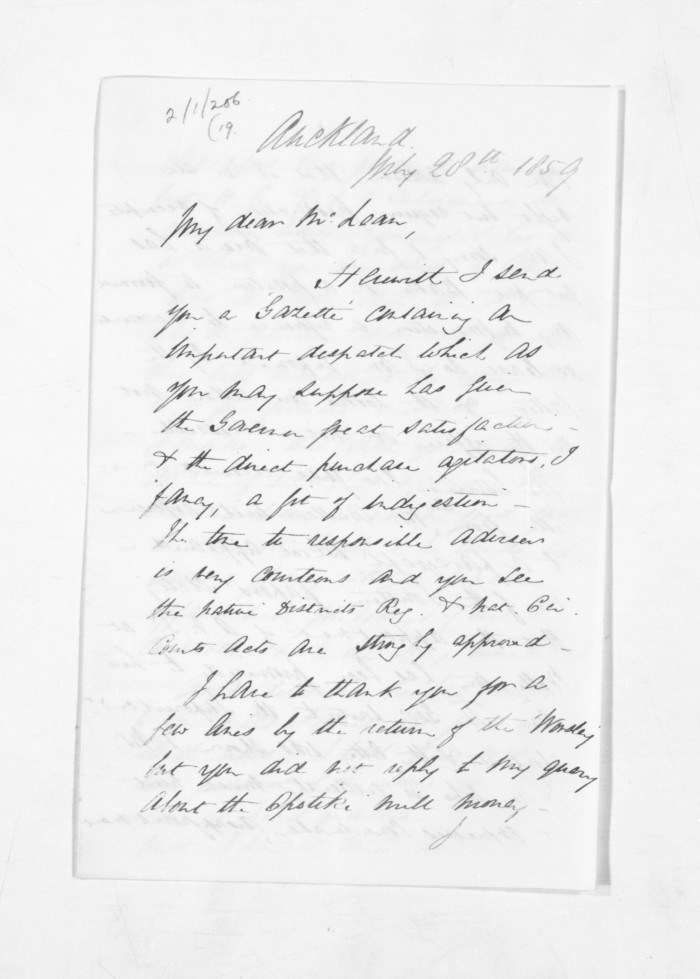 2/1/206.
(19.
Auckland.
July 28th 1859
My dear McLean,
Herewith I send
you a 'Gazette' containing an
important despatch which as
you may suppose has given
the Governor great satisfaction -
& the direct purchase agitators, I
fancy, a fit of indigestion -
The tone to responsible advisers
is very courteous and you see
the Native Districts Reg. & Nat. Cir.
Courts Acts are strongly approved -
I have to thank you for a
few lines by the return of the 'Wonslay'
but you did not reply to my query
about the Opotiki mill money -
I